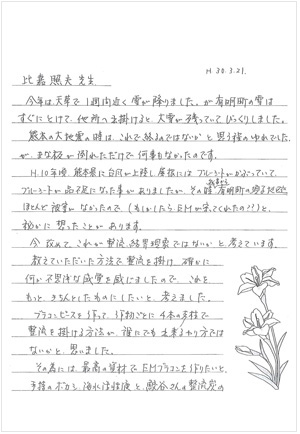 H.30.3.21.
比嘉照夫先生
今年は、天草で1週間近く雪が降りました。が有明町の雪は
すぐにとけて、他所へ出掛けると、大雪が残っていてびっくりしました。
熊本の大地震の時は、これで終るのではないかと思う程のゆれでした
が、まな板が倒れただけで何事もなかったのです。
H.10年頃、熊本県に台風が上陸し、屋根にはブルーシートがかぶっていて、
ブルーシートが品不足になった事がありましたが、その時有明町の
ほとんど被害がなかったので(もしかしたらEMが来てくれたの!?)と、
秘かに思ったことがあります。
今改めて、これが整流、結界現象ではないかと考えています。
教えていただいた方法で整流を掛け、確かに
何か不思議な感覚を感じましたので、これを
もっと、きちんとしたものにしたいと、考えました。
プラコンピースを作って、作物ごとに4本の支柱で
整流を掛ける方法が、誰にでも出来るやり方では
ないかと、思いました。
その為には、最高の資材でEMプラコンを作りたいと、
手持のボカシ、海水活性液と、鮫谷さんの整流炭の